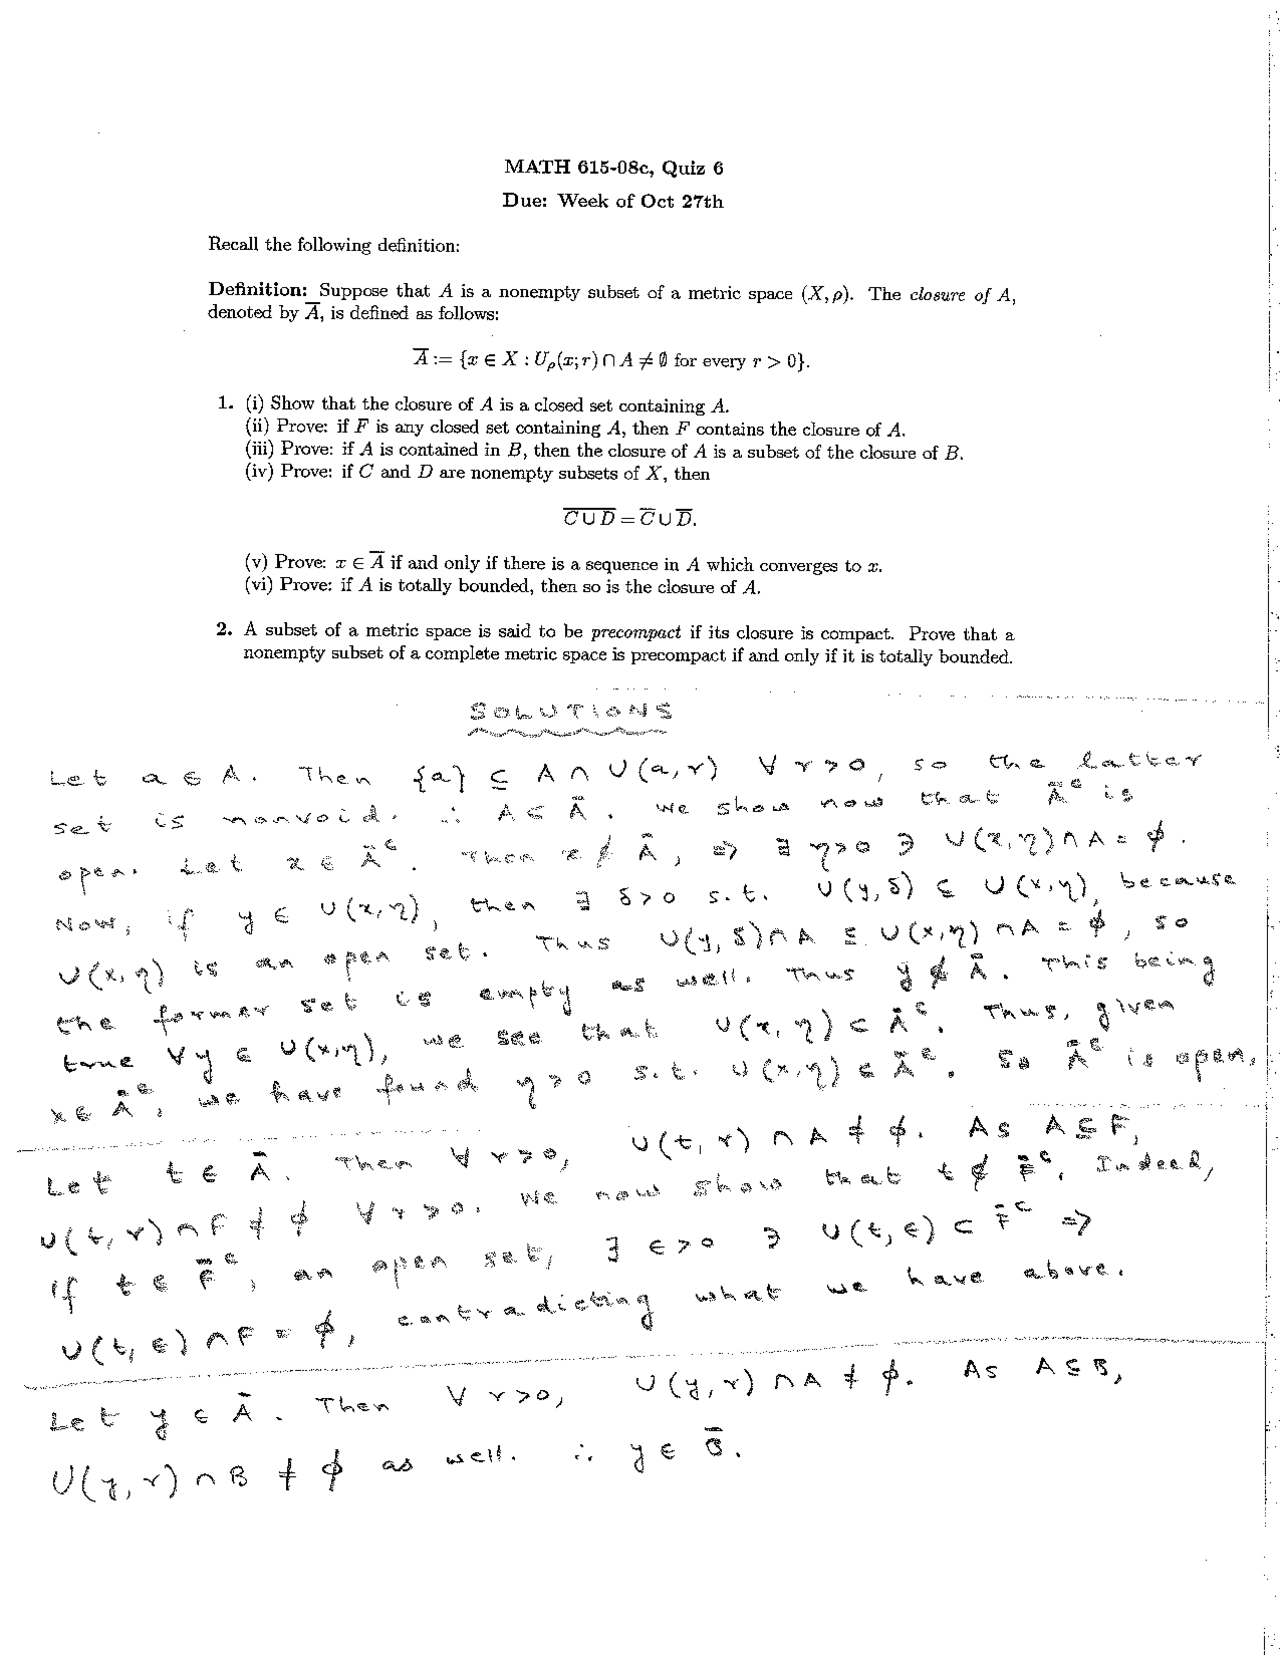 MATH 615-08c, Quiz 6
Due: Week of Oct 27th
Recall the following definition:
Definition: Suppose that A is a nonempty subset of a metric space (X, ρ). The closure of A,
denoted by A̅, is defined as follows:
A̅ := {x ∈ X : U_ρ(x; r) ∩ A ≠ ∅ for every r > 0}.
1. (i) Show that the closure of A is a closed set containing A.
(ii) Prove: if F is any closed set containing A, then F contains the closure of A.
(iii) Prove: if A is contained in B, then the closure of A is a subset of the closure of B.
(iv) Prove: if C and D are nonempty subsets of X, then
C̅ ∪ D̅ = C̅ ∪ D̅.
(v) Prove: x ∈ A̅ if and only if there is a sequence in A which converges to x.
(vi) Prove: if A is totally bounded, then so is the closure of A.
2. A subset of a metric space is said to be precompact if its closure is compact. Prove that a
nonempty subset of a complete metric space is precompact if and only if it is totally bounded.
SOLUTIONS
Let a ∈ A. Then {a} ⊆ A ∩ U(a, r) ∀ r > 0, so the latter
set is nonvoid. ∴ A ⊂ A̅. We show now that A̅ᶜ is
open. Let x ∈ A̅ᶜ. Then x ∉ A̅, ⇒ ∃ η > 0 ∋ U(x, η) ∩ A = ϕ.
Now, if y ∈ U(x, η), then ∃ δ > 0 s.t. U(y, δ) ⊆ U(x, η), because
U(x, η) is an open set. Thus U(y, δ) ∩ A ⊆ U(x, η) ∩ A = ϕ, so
the former set is empty as well. Thus y ∉ A̅. This being
true ∀ y ∈ U(x, η), we see that U(x, η) ⊂ A̅ᶜ. Thus, given
x ∈ A̅ᶜ, we have found η > 0 s.t. U(x, η) ⊆ A̅ᶜ. So A̅ᶜ is open.
Let t ∈ A̅. Then ∀ r > 0, U(t, r) ∩ A ≠ ϕ. As A ⊆ F,
U(t, r) ∩ F ≠ ϕ ∀ r > 0. We now show that t ∉ F̅ᶜ. Indeed,
if t ∈ F̅ᶜ, an open set, ∃ ϵ > 0 ∋ U(t, ϵ) ⊂ F̅ᶜ ⇒
U(t, ϵ) ∩ F = ϕ, contradicting what we have above.
Let y ∈ A̅. Then ∀ r > 0, U(y, r) ∩ A ≠ ϕ. As A ⊆ B,
U(y, r) ∩ B ≠ ϕ as well. ∴ y ∈ B̅.